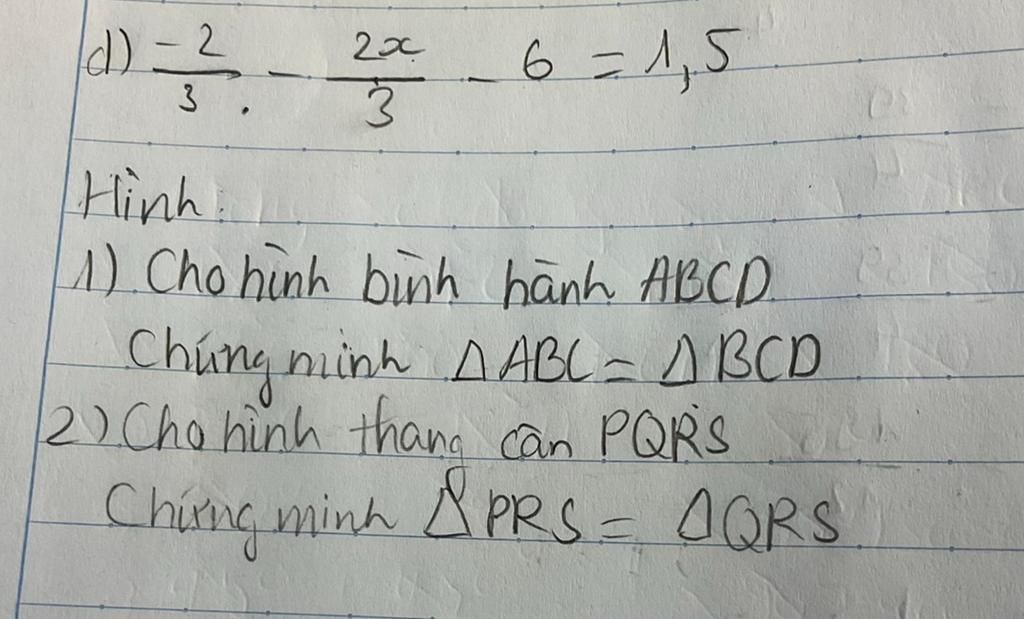 d) -2/3 - 2x/3 - 6 = 1,5
Hình:
1) Cho hình bình hành ABCD
Chứng minh Δ ABC = Δ BCD
2) Cho hình thang cân PQRS
Chứng minh Δ PRS = Δ QRS